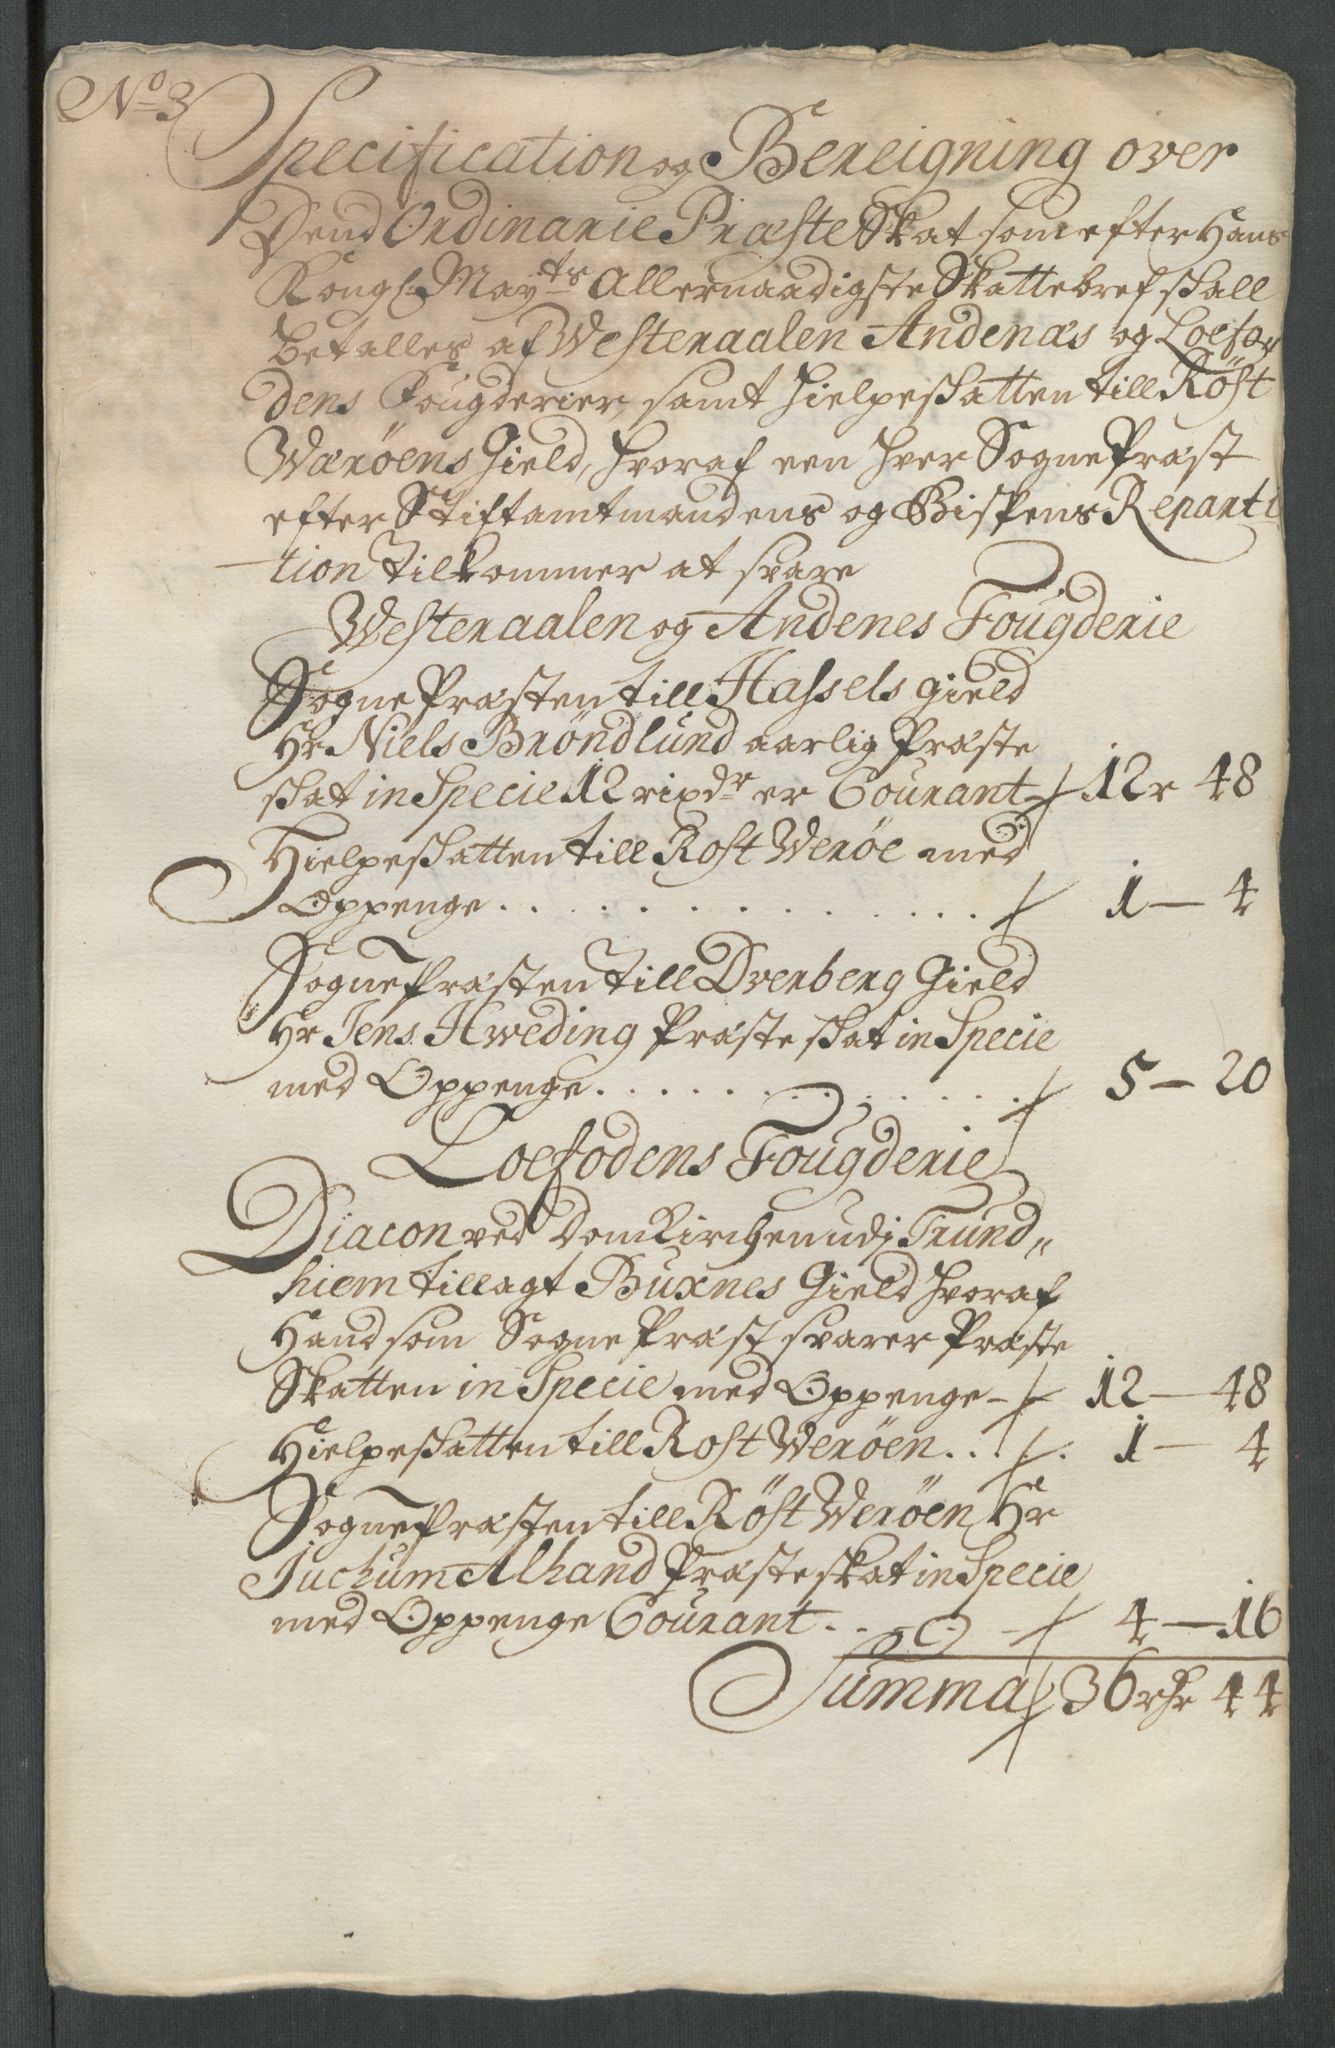 No 3
Specification og Bereigning over
Dend Ordinarie Præste Skat som efter Hans
Kongl: Mayts Allernaadigste Skattebref skall
betalles af Westeraalen Andenæs og Loefo,,
dens Fougderier, samt hielpeskatten till Röst
Wæröens Gield, hvoraf een hver Sogne Præst
efter Stiftamtmandens og Bispens Reparti
tion tilkommer at svare
Westeraalen og Andenes Fougderie
Sogne Præsten till Hassels gield
Hr Niels Bröndlund aarlig Præste
skat in Specie 12 rixdr er Courant 12r 48
Hielpeskatten till Rost Weröe med
Oppenge . . . . . . . . . . . 1 — 4
Sogne Præsten till Dverberg Gield
Hr Jens Hweding Præste skat in Specie
med Oppenge . . . . . . . . . . . 5 — 20
Loefodens Fougderie
Diacon ved Domkirchen udj Trund,,
hiem tillagt Buxnes Gield hvoraf
Hand som Sogne Præst svarer Præste
Skatten in Specie med Oppenge — 12 — 48
Hielpeskatten till Rost Weröen . . . 1 — 4
Sogne Præsten till Röst Weröen Hr
Juchum Alhand Præste skat in Specie
med Oppenge Courant . . — 4 — 16
Summa 36 rdr 44